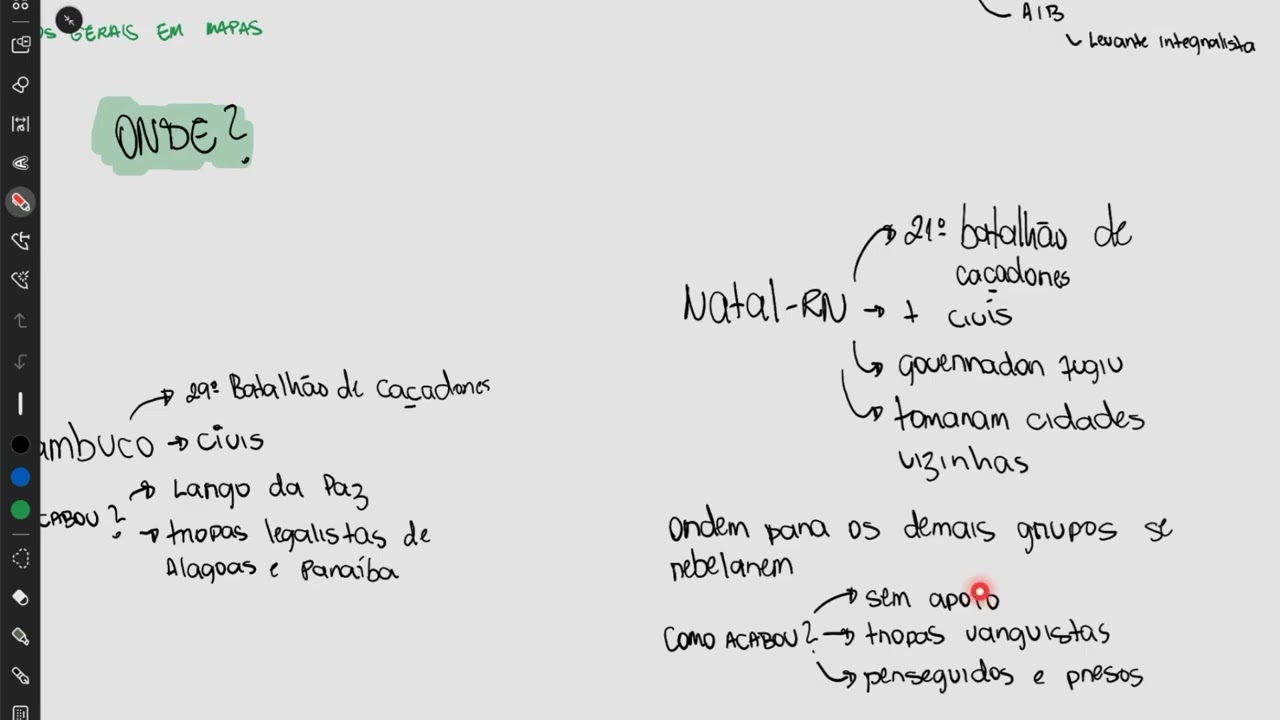 OS GERAIS EM MAPAS
AIB
Levante integralista
ONDE?
Natal-RN
21º batalhão de
caçadores
+ civis
governador fugiu
tomaram cidades
vizinhas
Ordem para os demais grupos se
rebelarem
COMO ACABOU?
sem apoio
tropas varguistas
perseguidos e presos
ambuco
29º Batalhão de caçadores
civis
CABOU?
Largo da Paz
tropas legalistas de
Alagoas e Paraíba